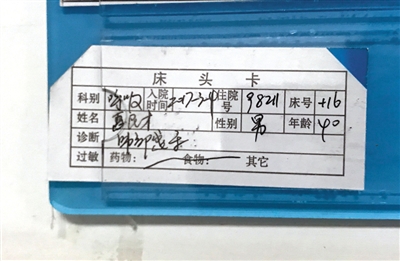 床 头 卡
科别 呼吸 入院时间 2017-3-9 住院号 98211 床号 +16
姓名 性别 男 年龄 40
诊断 肺部感染
过敏 药物: 食物: 其它